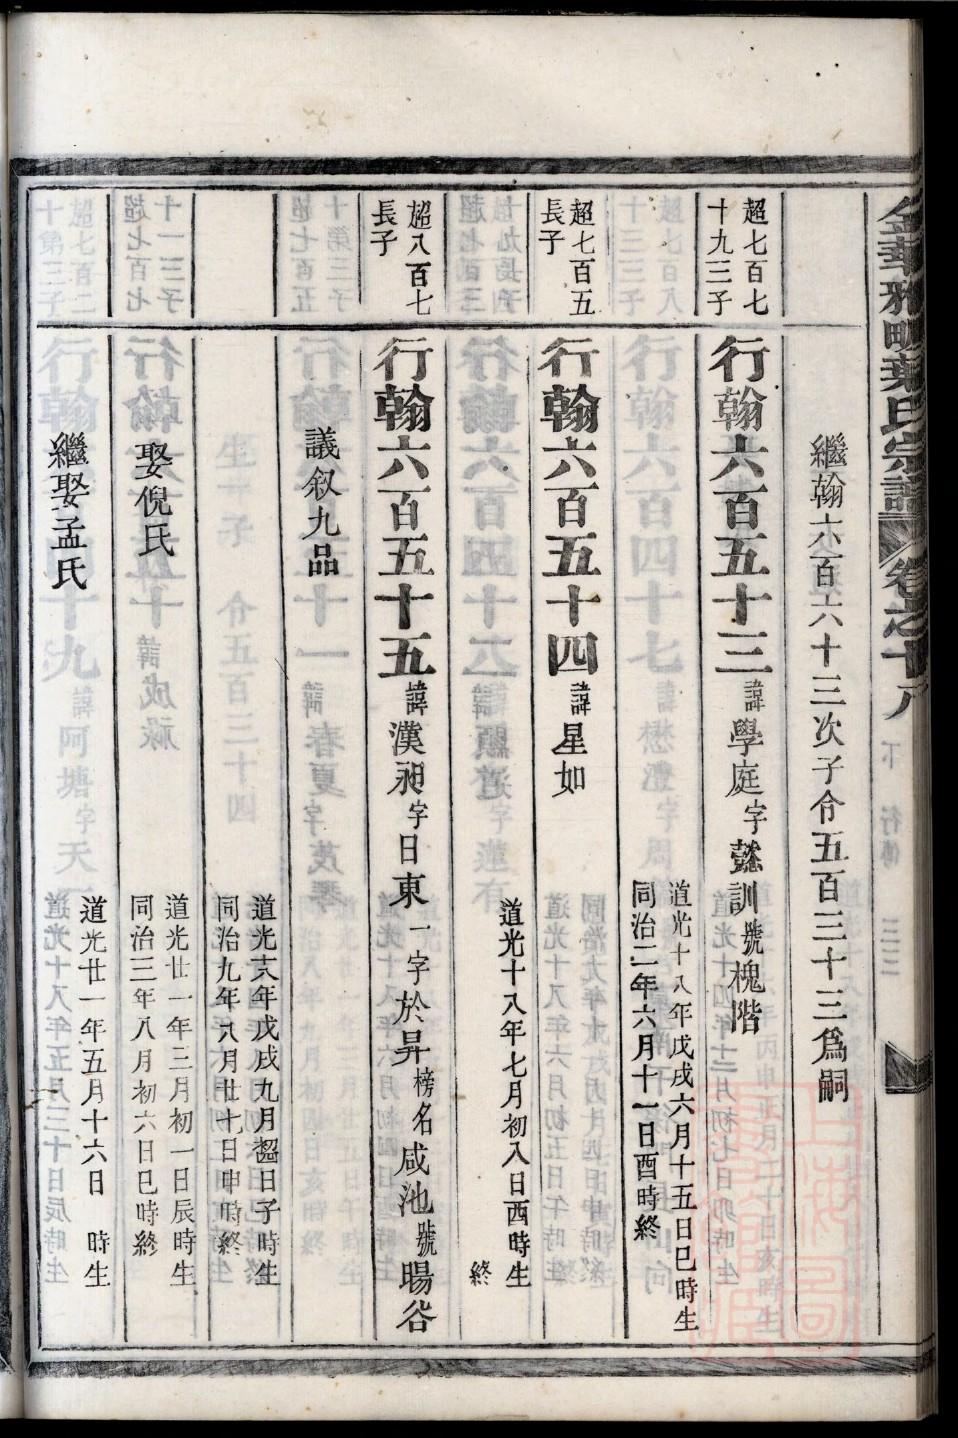 金華雅畈葉氏宗譜 卷之十八 下 行傳
繼翰六百六十三次子令五百三十三爲嗣
超七百七
十九三子
行翰六百五十三 諱學庭字懿訓號槐階
道光十八年戊戌六月十五日巳時生
同治二年六月十一日酉時終
超七百五
長子
行翰六百五十四 諱星如
道光十八年七月初八日酉時生
終
超八百七
長子
行翰六百五十五 諱漢昶字日東一字於昇榜名咸池號暘谷
議敘九品
道光十八年戊戌九月初四日子時生
同治九年八月廿七日申時終
娶倪氏
道光廿一年三月初一日辰時生
同治三年八月初六日巳時終
繼娶孟氏
道光廿一年五月十六日 時生